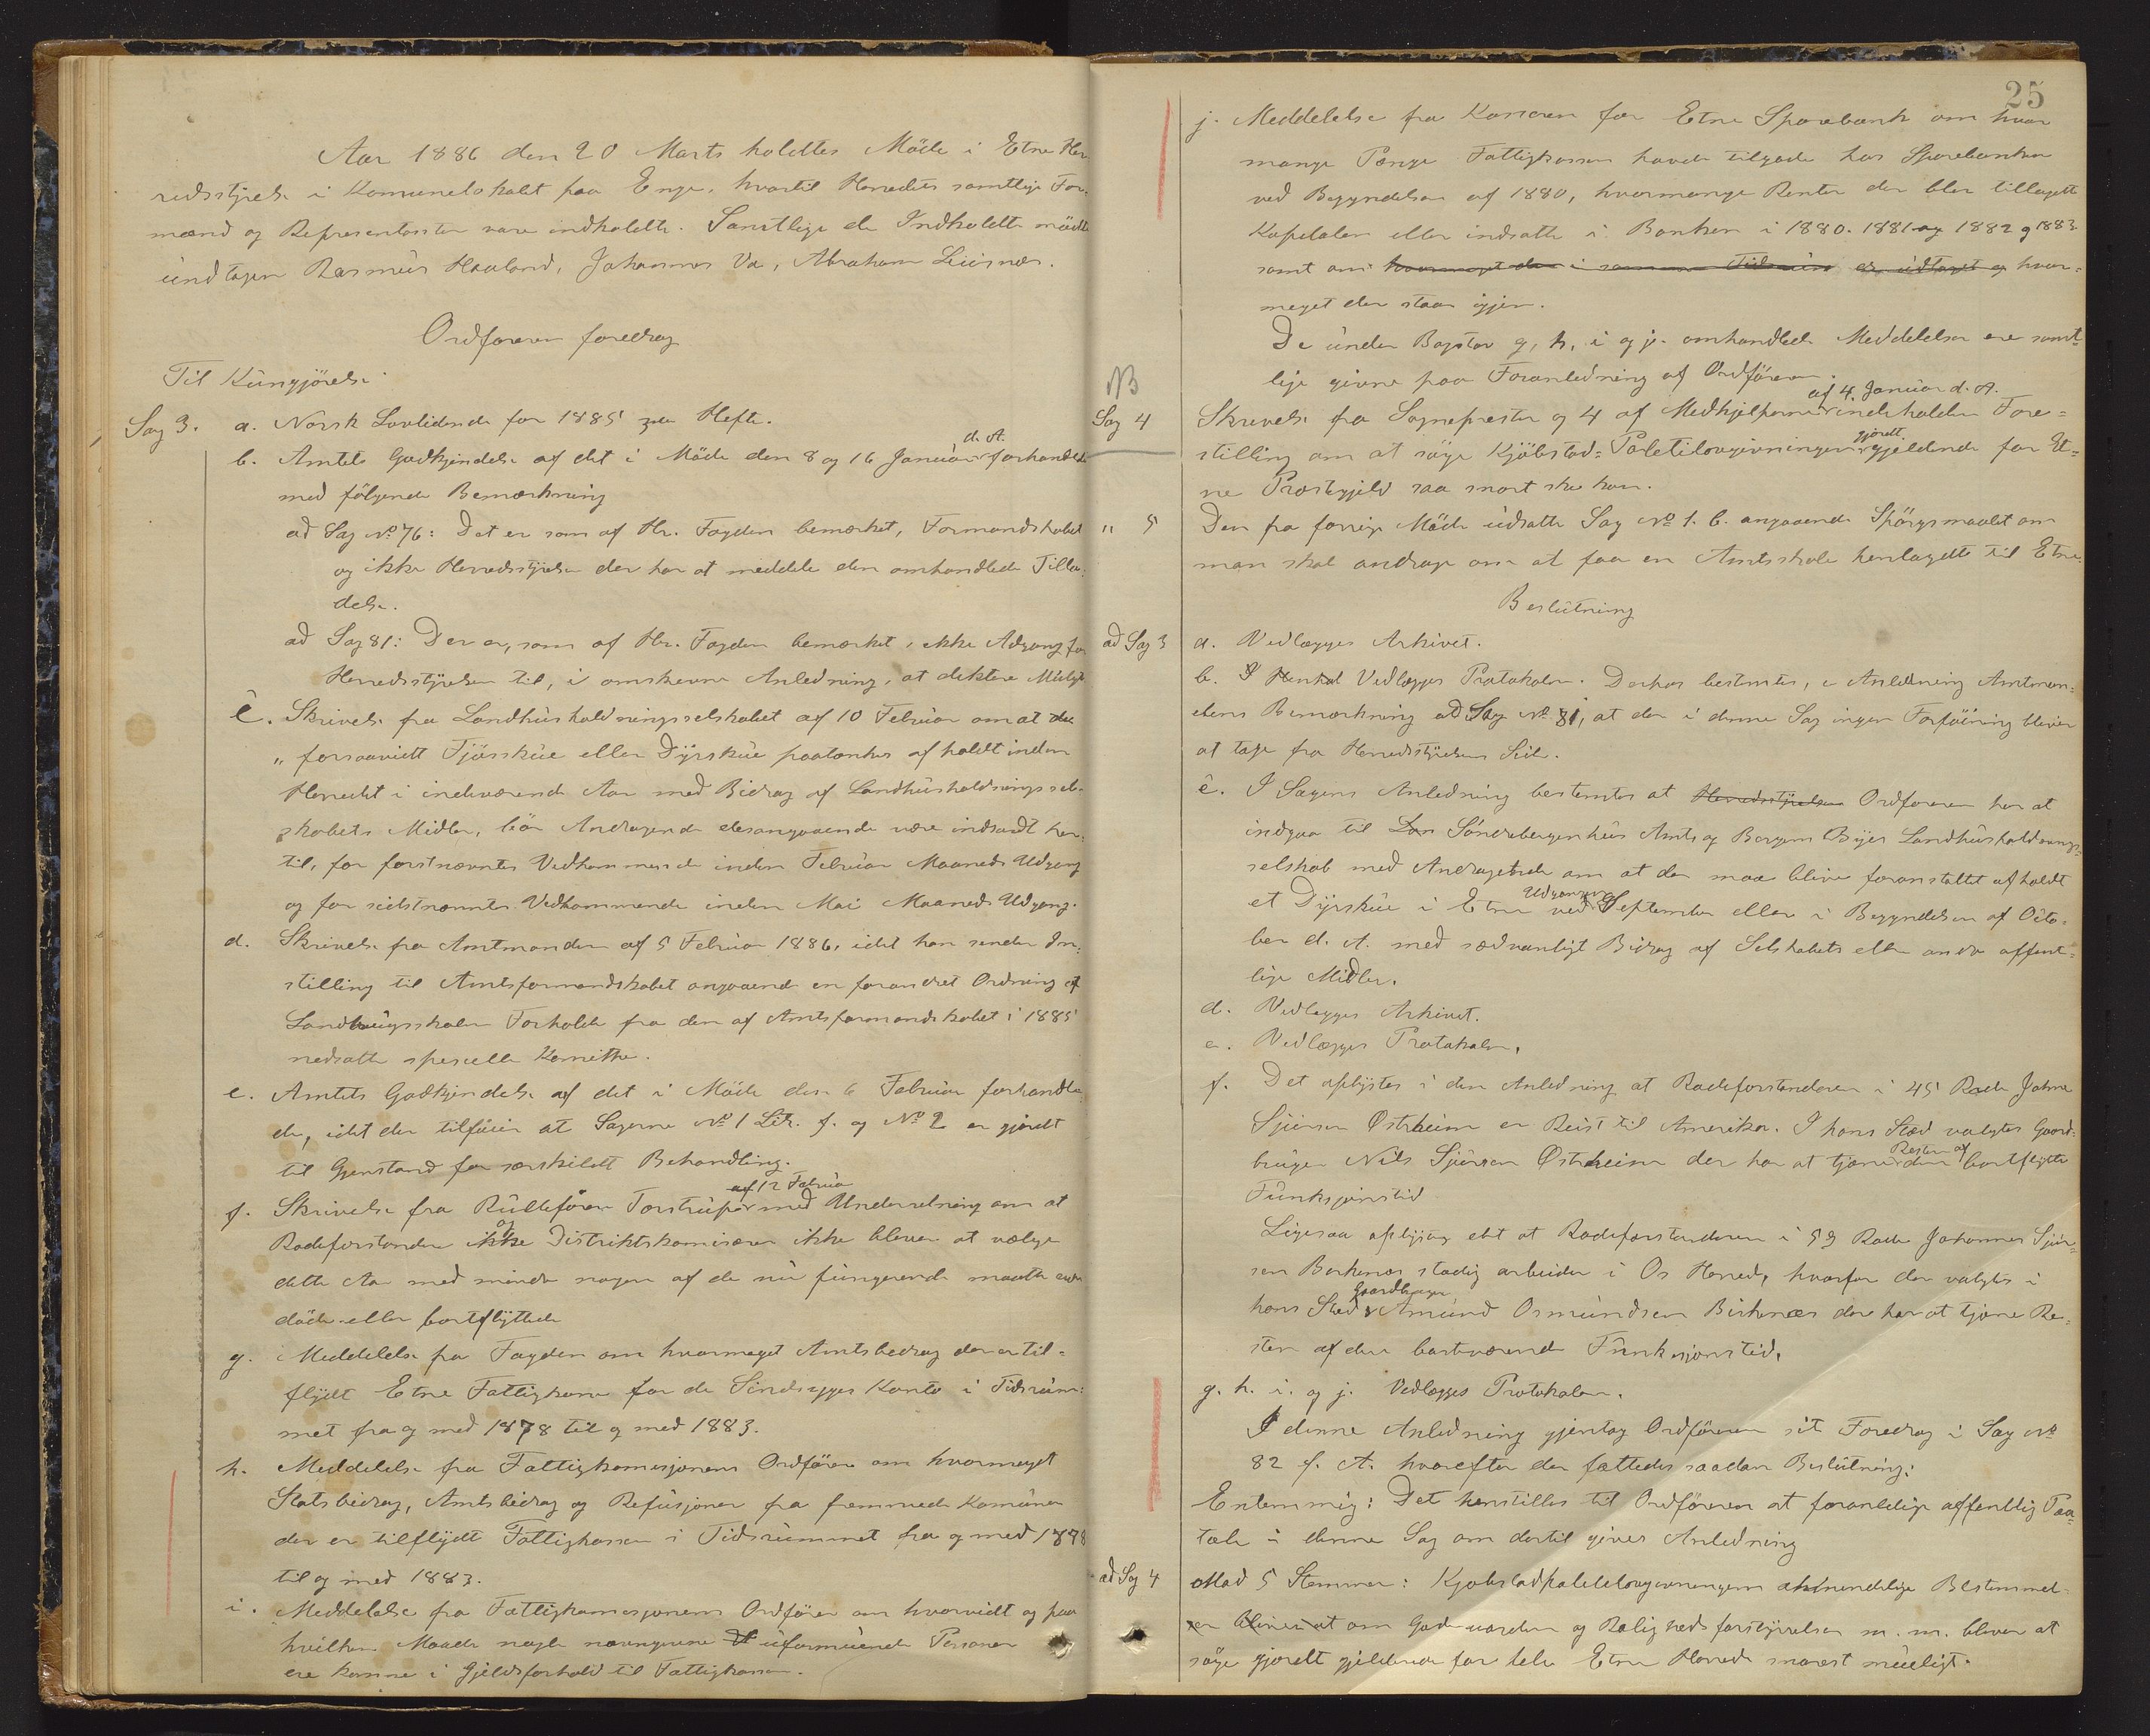 Aar 1886 den 20 Marts holdtes Möde i Etne Her-
redsstyrelse i Komunelokalet paa Enge, hvortil Herredets samtlige For-
mænd og Representanter vare indkaldte. Samtlige de Indkaldte mödte
undtagen Rasmus Haaland, Johannes Va, Abraham Leirnes.
Ordföreren foredrog
Til Kungjörelse
Sag 3. a. Norsk Lovtidende for 1885 3die Hefte.
d. A.
b. Amtets Godkjendelse af det i Möde den 8 og 16 Januar forhandlede
med fölgende Bemærkning
ad Sag No 76: Det er som af Hr. Fogden bemærket, Formandskabet
og ikke Herredsstyrelse der har at meddele den omhandlede Tilla-
delse.
ad Sag 81: Der er, som af Hr. Fogden bemærket, ikke Adgang for
Herredsstyrelsen til, i omskrevne Anledning, at diktere Mulgt
c. Skrivelse fra Landhusholdningsselskabet af 10 Februar om at
„forsaavidt Fjösskue eller Dyrskue paatænkes afholdt inden
Herredet i indeværende Aar med Bidrag af Landhusholdningssel-
skabets Midler, bör Andragende desangaaende være indsendt her-
til, for förstnævntes Vedkommende inden Februar Maaneds Udgang
og for sidstnævntes Vedkommende inden Mai Maaneds Udgang.
d. Skrivelse fra Amtmanden af 5 Februar 1886, idet han sender Ind-
stilling til Amtsformandskabet angaaende en forandret Ordning af
Landbrugsskolen Forholde fra den af Amtsformandskabet i 1885
nedsatte specielle Komitte.
e. Amtets Godkjendelse af det i Möde den 6 Februar forhandle-
de, idet der tilföies at Sagerne No 1 Litr. f. og No 2 er gjordt
til Gjenstand for særskildt Behandling.
af 12 Februar
f. Skrivelse fra Rulleförer Torstrup med Underretning om at
og
Rodeforstandere ikke Distriktskomisærer ikke bliver at vælge
dette Aar med mindre nogen af de nu fungerende maatte være
döde eller bortflyttede
g. Meddelelse fra Fogden om hvormeget Amtsbidrag der er til-
flydt Etne Fattigkasse for de Sindssyges Konto i Tidsrum-
met fra og med 1878 til og med 1883.
h. Meddelelse fra Fattigkomisjonens Ordförer om hvormeget
Statsbidrag, Amtsbidrag og Refusjoner fra fremmede Komuner
der er tilflydt Fattigkassen i Tidsrummet fra og med 1878
til og med 1883.
i. Meddelelse fra Fattigkomisjonens Ordförer om hvorvidt og paa
hvilken Maade nogle navngivne uformuende Personer
ere komne i Gjeldsforhold til Fattigkassen.
25
j. Meddelelse fra Kasseren for Etne Sparebank om hvor
mange Penge Fattigkassen havde tilgode hos Sparebanken
ved Begyndelsen af 1880, hvormange Renter der blev tillagdt
Kapitalen eller indsatte i Banken i 1880. 1881 og 1882 og 1883
samt om hvormeget der i samme Tidsrum er udtaget og hvor-
meget der staar igjen.
De under Bogstav g, h, i og j. omhandlede Meddelelser ere samt-
lige givne paa Foranledning af Ordföreren.
NB
af 4. Januar d. A.
Sag 4 Skrivelse fra Sognepresten og 4 af Medhjelperne indeholden Fore-
gjordt
stilling om at söge Kjöbstad-Poletilovgivningen gjeldende for Et-
ne Præstegjeld saa snart ske kan.
" 5 Den fra forrige Möde udsatte Sag No 1. b. angaaende Spörgsmaalet om
man skal andrage om at faa en Amtsskole henlagdt til Etne.
Beslutning
ad Sag 3 a. Vedlægges Arkivet.
b. Vedlægges Protokolen. Derhos bestemtes, i Anledning Amtman-
dens Bemærkning ad Sag No 81, at der i denne Sag ingen Forföining bliver
at tage fra Herredsstyrelsens Side.
c. I Sagens Anledning bestemtes at Herredsstyrelsen Ordföreren har at
indgaa til Söndrebergenhus Amts og Bergens Byes Landhusholdnings-
selskab med Andragende om at der maa blive foranstaltet afholdt
Udgangen af
et Dyrskue i Etne ved September eller i Begyndelsen af Octo-
ber d. A. med sædvanligt Bidrag af Selskabets eller andre offent-
lige Midler.
d. Vedlægges Arkivet.
e. Vedlægges Protokolen.
f. Det oplystes i den Anledning at Rodeforstanderen i 45 Rode Johne
Sjursen Østrheim er Reist til Amerika. I hans Sted valgtes Gaard-
Resten af
bruger Nils Sjursen Østrheim der har at tjene den bortflytte
Funksjonstid
Ligesaa oplystes det at Rodeforstanderen i 53 Rode Johannes Sjur-
sen Berknes stadig arbeider i Os Herred, hvorfor der valgtes i
Gaardbruger
hans Sted Amund Osmundsen Birknes der har at tjene Re-
sten af den bortværende Funksjonstid.
g. h. i. og j. Vedlægges Protokolen.
I denne Anledning gjentog Ordföreren sit Foredrag i Sag No
82 f. A. hvorefter der fattedes saadan Beslutning:
Enstemmig: Det henstilles til Ordföreren at foranledige offentlig Paa-
tale i denne Sag om dertil gives Anledning
ad Sag 4 Mod 5 Stemmer: Kjöbstadpoletilovgivningens almindelige Bestemmel-
ser om Gadeuorden og Rolighedsforstyrrelser m. m. bliver at
söge gjordt gjeldende for hele Etne Herred snarest muligt.